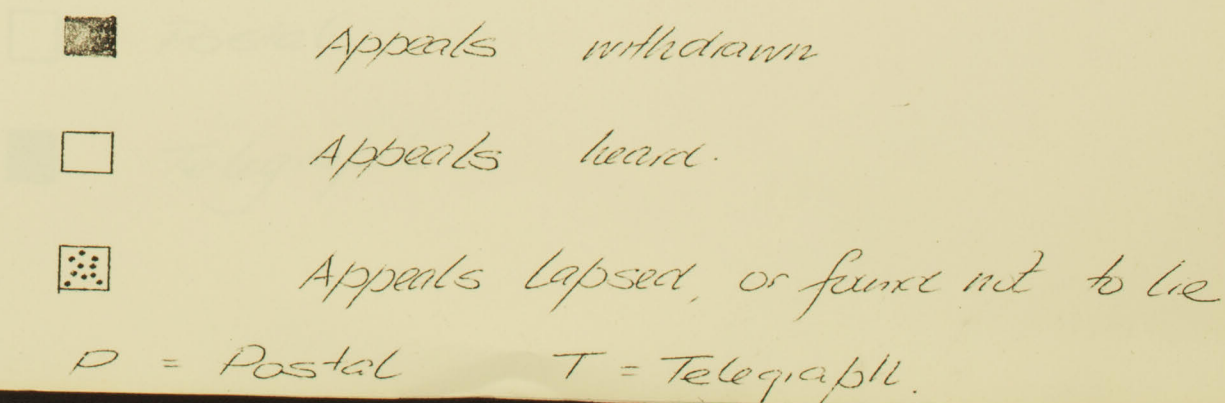 Appeals withdrawn
Appeals heard.
Appeals Lapsed, or found not to lie
P = Postal T = Telegraph.